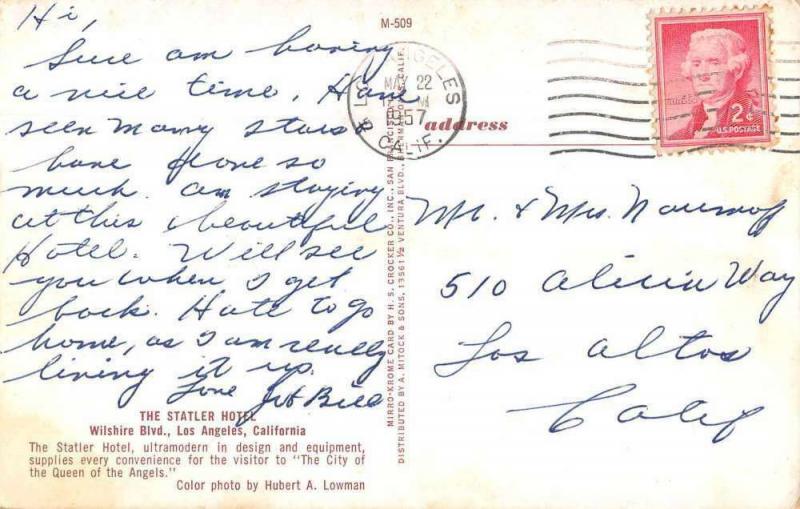 M-509
Hi,
Sure am having
a nice time. Have
seen many stars &
have done so
much. am staying
at this beautiful
Hotel. Will see
you when I get
back. Hate to go
home, as I am really
living it up.
Love
THE STATLER HOTEL
Wilshire Blvd., Los Angeles, California
The Statler Hotel, ultramodern in design and equipment,
supplies every convenience for the visitor to "The City of
the Queen of the Angels."
Color photo by Hubert A. Lowman
MIRRO-KROME CARD BY H. S. CROCKER CO., INC., SAN FRANCISCO
DISTRIBUTED BY A. MITOCK & SONS, 13561½ VENTURA BLVD., SHERMAN OAKS, CALIF.
LOS ANGELES
MAY 22
1957
CALIF.
address
2¢
U.S. POSTAGE
Mr. & Mrs.
510 Alicia Way
Los Altos
Calif